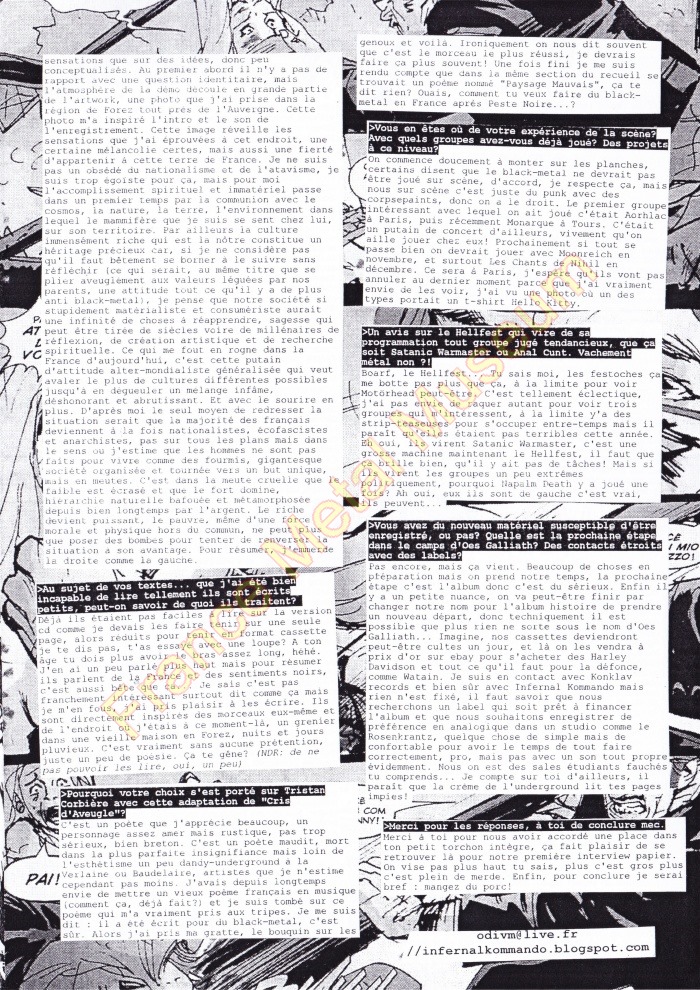 sensations que sur des idées, donc peu
conceptualisés. Au premier abord il n'y a pas de
rapport avec une question identitaire, mais
l'atmosphère de la démo découle en grande partie
de l'artwork, une photo que j'ai prise dans la
région de Forez tout près de l'Auvergne. Cette
photo m'a inspiré l'intro et le son de
l'enregistrement. Cette image réveille les
sensations que j'ai éprouvées à cet endroit, une
certaine mélancolie certes, mais aussi une fierté
d'appartenir à cette terre de France. Je ne suis
pas un obsédé du nationalisme et de l'atavisme, je
suis trop égoïste pour ça, mais pour moi
l'accomplissement spirituel et immatériel passe
dans un premier temps par la communion avec le
cosmos, la nature, la terre, l'environnement dans
lequel le mammifère que je suis se sent chez lui,
sur son territoire. Par ailleurs la culture
immensément riche qui est la nôtre constitue un
héritage précieux car, si je ne considère pas
qu'il faut bêtement se borner à le suivre sans
réfléchir (ce qui serait, au même titre que se
plier aveuglément aux valeurs léguées par nos
parents, une attitude tout ce qu'il y a de plus
anti black-metal), je pense que notre société si
stupidement matérialiste et consumériste aurait
une infinité de choses à réapprendre, sagesse qui
peut être tirée de siècles voire de millénaires de
réflexion, de création artistique et de recherche
spirituelle. Ce qui me fout en rogne dans la
France d'aujourd'hui, c'est cette putain
d'attitude alter-mondialiste généralisée qui veut
avaler le plus de cultures différentes possibles
jusqu'à en dégueuler un mélange infâme,
déshonorant et abrutissant. Et avec le sourire en
plus. D'après moi le seul moyen de redresser la
situation serait que la majorité des français
deviennent à la fois nationalistes, écofascistes
et anarchistes, pas sur tous les plans mais dans
le sens où j'estime que les hommes ne sont pas
faits pour vivre comme des fourmis, gigantesque
société organisée et tournée vers un but unique,
mais en meutes. C'est dans la meute cruelle que le
faible est écrasé et que le fort domine,
hiérarchie naturelle bafouée et métamorphosée
depuis bien longtemps par l'argent. Le riche
devient puissant, le pauvre, même d'une force
morale et physique hors du commun, ne peut plus
que poser des bombes pour tenter de renverser la
situation à son avantage. Pour résumer j'emmerde
la droite comme la gauche.
>Au sujet de vos textes... que j'ai été bien
incapable de lire tellement ils sont écrits
petits, peut-on savoir de quoi ils traitent?
Déjà ils étaient pas faciles à lire sur la version
cd comme je devais les faire tenir sur une seule
page, alors réduits pour tenir en format cassette
je te dis pas, t'as essayé avec une loupe? A ton
âge tu dois plus avoir le bras assez long, héhé.
J'en ai un peu parlé plus haut mais pour résumer
ils parlent de la nature et des sentiments noirs,
c'est aussi simple que ça. Je sais c'est pas
franchement intéressant surtout dit comme ça mais
je m'en fous, j'ai pris plaisir à les écrire. Ils
sont directement inspirés des morceaux eux-même et
de l'endroit où j'étais à ce moment-là, un grenier
dans une vieille maison en Forez, nuits et jours
pluvieux. C'est vraiment sans aucune prétention,
juste un peu de poésie. Ça te gêne? (NDR: de ne
pas pouvoir les lire, oui, un peu)
>Pourquoi votre choix s'est porté sur Tristan
Corbière avec cette adaptation de "Cris
d'Aveugle"?
C'est un poète que j'apprécie beaucoup, un
personnage assez amer mais rustique, pas trop
sérieux, bien breton. C'est un poète maudit, mort
dans la plus parfaite insignifiance mais loin de
l'esthétisme un peu dandy-underground à la
Verlaine ou Baudelaire, artistes que je n'estime
cependant pas moins. J'avais depuis longtemps
envie de mettre un vieux poème français en musique
(comment ça, déjà fait?) et je suis tombé sur ce
poème qui m'a vraiment pris aux tripes. Je me suis
dit : il a été écrit pour du black-metal, c'est
sûr. Alors j'ai pris ma gratte, le bouquin sur les
genoux et voilà. Ironiquement on nous dit souvent
que c'est le morceau le plus réussi, je devrais
faire ça plus souvent! Une fois fini je me suis
rendu compte que dans la même section du recueil se
trouvait un poème nommé "Paysage Mauvais", ça te
dit rien? Ouais, comment tu veux faire du black-
metal en France après Peste Noire...?
>Vous en êtes où de votre expérience de la scène?
Avec quels groupes avez-vous déjà joué? Des projets
à ce niveau?
On commence doucement à monter sur les planches,
certains disent que le black-metal ne devrait pas
être joué sur scène, d'accord, je respecte ça, mais
nous sur scène c'est juste du punk avec des
corpsepaints, donc on a le droit. Le premier groupe
intéressant avec lequel on ait joué c'était Aorhlac
à Paris, puis récemment Monarque à Tours. C'était
un putain de concert d'ailleurs, vivement qu'on
aille jouer chez eux! Prochainement si tout se
passe bien on devrait jouer avec Moonreich en
novembre, et surtout Les Chants de Nihil en
décembre. Ce sera à Paris, j'espère qu'ils vont pas
annuler au dernier moment parce que j'ai vraiment
envie de les voir, j'ai vu une photo où un des
types portait un t-shirt Hello Kitty.
>Un avis sur le Hellfest qui vire de sa
programmation tout groupe jugé tendancieux, que ça
soit Satanic Warmaster ou Anal Cunt. Vachement
métal non ?!
Boarf, le Hellfest... Tu sais moi, les festoches ça
me botte pas plus que ça, à la limite pour voir
Motörhead ouais. C'est tellement éclectique,
j'ai pas envie de payer autant pour voir trois
groupes qui m'intéressent, à la limite y'a des
strip-teaseuses pour s'occuper entre-temps mais il
paraît qu'elles étaient pas terribles cette année.
Eh oui, ils virent Satanic Warmaster, c'est une
grosse machine maintenant le Hellfest, il faut que
ça brille bien, qu'il y ait pas de tâches! Mais si
ils virent les groupes un peu extrêmes
politiquement, pourquoi Napalm Death y a joué une
fois? Ah oui, eux ils sont de gauche c'est vrai,
ils peuvent...
>Vous avez du nouveau matériel susceptible d'être
enregistré, ou pas? Quelle est la prochaine étape
dans le camps d'Oes Galliath? Des contacts étroits
avec des labels?
Pas encore, mais ça vient. Beaucoup de choses en
préparation mais on prend notre temps, la prochaine
étape c'est l'album donc c'est du sérieux. Enfin il
y a un petite nuance, on va peut-être finir par
changer notre nom pour l'album histoire de prendre
un nouveau départ, donc techniquement il est
possible que plus rien ne sorte sous le nom d'Oes
Galliath... Imagine, nos cassettes deviendront
peut-être cultes un jour, et là on les vendra à
prix d'or sur ebay pour s'acheter des Harley
Davidson et tout ce qu'il faut pour la défonce,
comme Watain. Je suis en contact avec Konklav
records et bien sûr avec Infernal Kommando mais
rien n'est fixé, il faut savoir que nous
recherchons un label qui soit prêt à financer
l'album et que nous souhaitons enregistrer de
préférence en analogique dans un studio comme le
Rosenkrantz, quelque chose de simple mais de
confortable pour avoir le temps de tout faire
correctement, pro, mais pas avec un son tout propre
évidemment. Nous on est des sales étudiants fauchés
tu comprends... Je compte sur toi d'ailleurs, il
paraît que la crème de l'underground lit tes pages
impies!
>Merci pour les réponses, à toi de conclure mec.
Merci à toi pour nous avoir accordé une place dans
ton petit torchon intègre, ça fait plaisir de se
retrouver là pour notre première interview papier.
On vise pas plus haut tu sais, plus c'est gros plus
c'est plein de merde. Enfin, pour conclure je serai
bref : mangez du porc!
odivm@live.fr
//infernalkommando.blogspot.com
PAI!
France Metal Museum